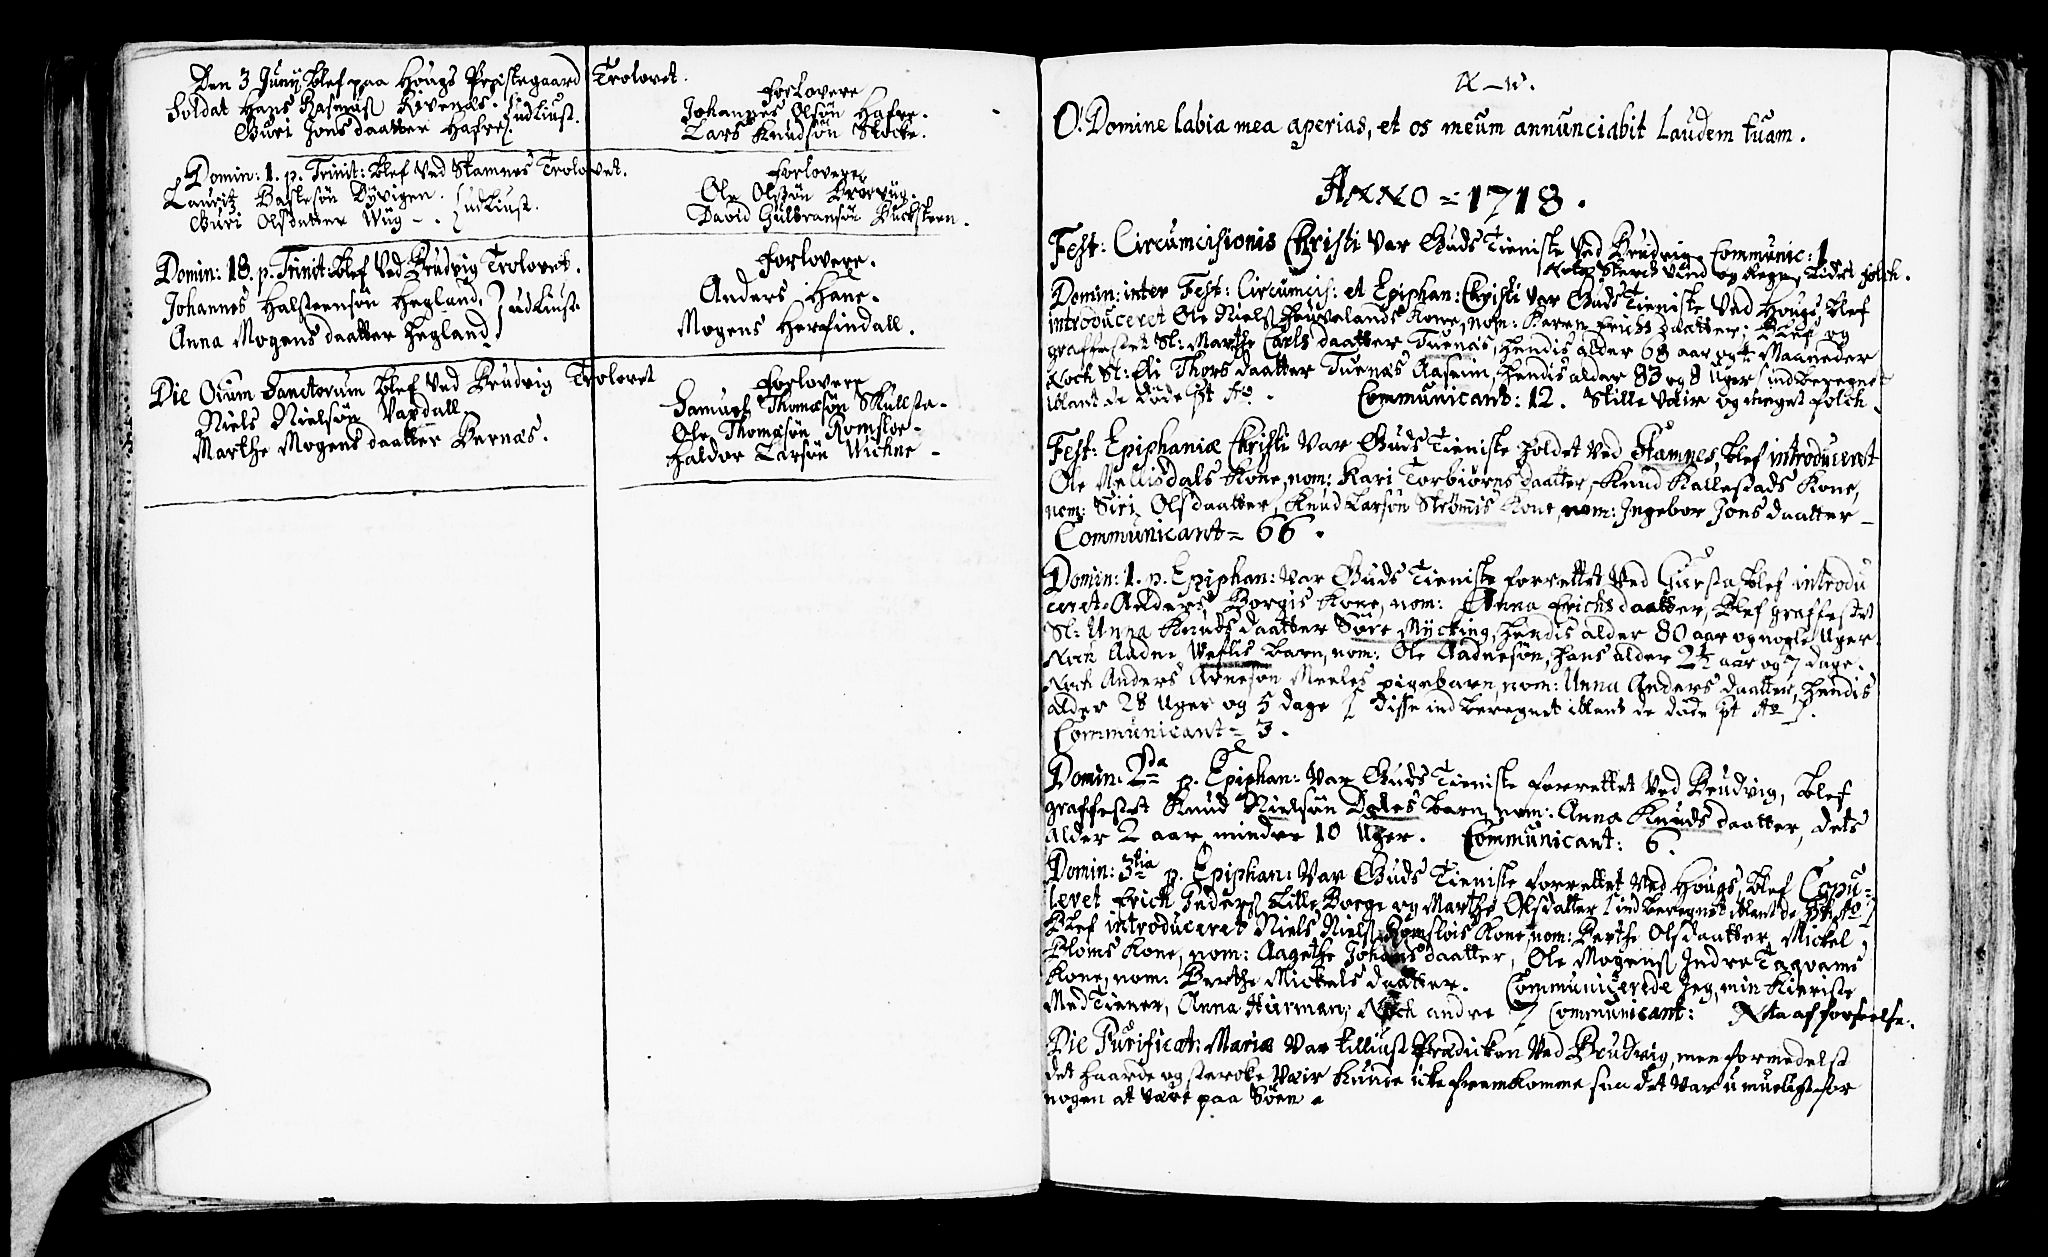 Den 3 Junij blef paa Hougs Præstegaard Trolovet.
Soldat Hans Rasmusß Rivenæs. udliust.
Guri Jonsdaatter Hafre
Forlovere
Johannes Olsøn Hafre.
Lars Knudsøn Stocke.
Domin: 1. p. Trinit: blef ved Stamnes Trolovet.
Lauritz Baltesøn Dyvigen. udliust.
Guri Olsdatter Wug
Forlovere
Ole Olsøn Brorvug.
David Gulbransøn Buchsteen.
Domin: 18. p. Trinit blef ved Brudvig Trolovet.
Johannes Halsteensøn Hegland, udliust
Anna Mogensdaatter Hegland
Forlovere.
Anders Hane.
Mogens Herfindall.
Die Oium Sanctorum blef ved Brudvig Trolovet
Niels Nielsøn Vaxdall
Marthe Mogensdaatter Bernæs.
Forlovere
Samuel Thomæsøn Skullsta.
Ole Thomæsøn Romsloe.
Haldor Larsøn Wichne
O! Domine labia mea aperias, et os meum annunciabit Laudem tuam.
ANNO = 1718.
Fest: Circumcisionis Christi var Guds Tieniste ved Brudvig Communic: 1
sterch vind og Regn, lidet folch.
Domin: inter Fest: Circumcis: et Epiphan: Christi var Guds Tieniste ved Hougs, blef
introduceret Ole Nielsß Kone, nom: Karen Erichsdaatter; blef og
graffæstet Sl: Marthe Carlsdaatter Tuenæs, hendis alder 68 aar og Maaneder
Noch Sl: Eli Thorsdaatter Tuenæs Aaseim, hendis alder 83 og 8 Uger indberegnet
iblant de døde pt Ao. Communicant: 12. Stille vær og meget folch.
Fest: Epiphaniæ Christi var Guds Tieniste holdet ved Stamnes, blef introduceret
Ole Kone, nom: Kari Torbiørnsdaatter, Knud Kallestads Kone,
nom: Siri Olsdaatter, Knud Larsøn Strømmis Kone, nom: Ingebor Jonsdaatter
Communicant = 66.
Domin: 1. p. Epiphan: var Guds Tieniste forrettet ved blef introdu
ceret Anders Borgis Kone, nom: Anna Erichsdaatter, blef graffæstet
Sl: Anna Knudsdaatter Søre Mycking, hendis alder 80 aar og nogle Uger.
Noch Aadne Wefles barn, nom: Ole Aadnesøn, hans alder 2½ aar og 7 dage.
Noch Anders Arnesøn Meeles pigebarn, nom: Anna Andersdaatter, hendis
alder 28 Uger og 5 dage disse indberegnet iblant de døde pt Ao.
Communicant = 3.
Domin: 2da p. Epiphan: var Guds Tieniste forrettet ved Brudvig, blef
graffæstet Knud Nielsøn Dales barn, nom: Anna Knudsdaatter, dets
alder 2 aar mindre 10 Uger. Communicant: 6.
Domin: 3tia p. Epiphan: var Guds Tieniste forrettet ved Hougs, blef Copu=
leret Erich Pedersß Lille Borge og Marthe Olsdatter indberegnet iblant de pt Ao
Blef introduceret Niels Nielsß Romslois Kone, nom: Berthe Olsdaatter, Mickel
Bloms Kone, nom: Aagethe Johansdaatter, Ole Mogensß Indre Taqvams
Kone, nom: Berthe Mickelsdaatter. Communicerede Jeg, min Kieriste
Med Tiener, Anna Hurman, Noch andre 7 Communicant: Nta af forseelse.
Die Purificat: Mariæ var tilliust Prædicken ved Brudvig, men formedelst
det haarde og stercke vær kunde icke fremkomme saa det var umueligt for
nogen at være paa Søen.